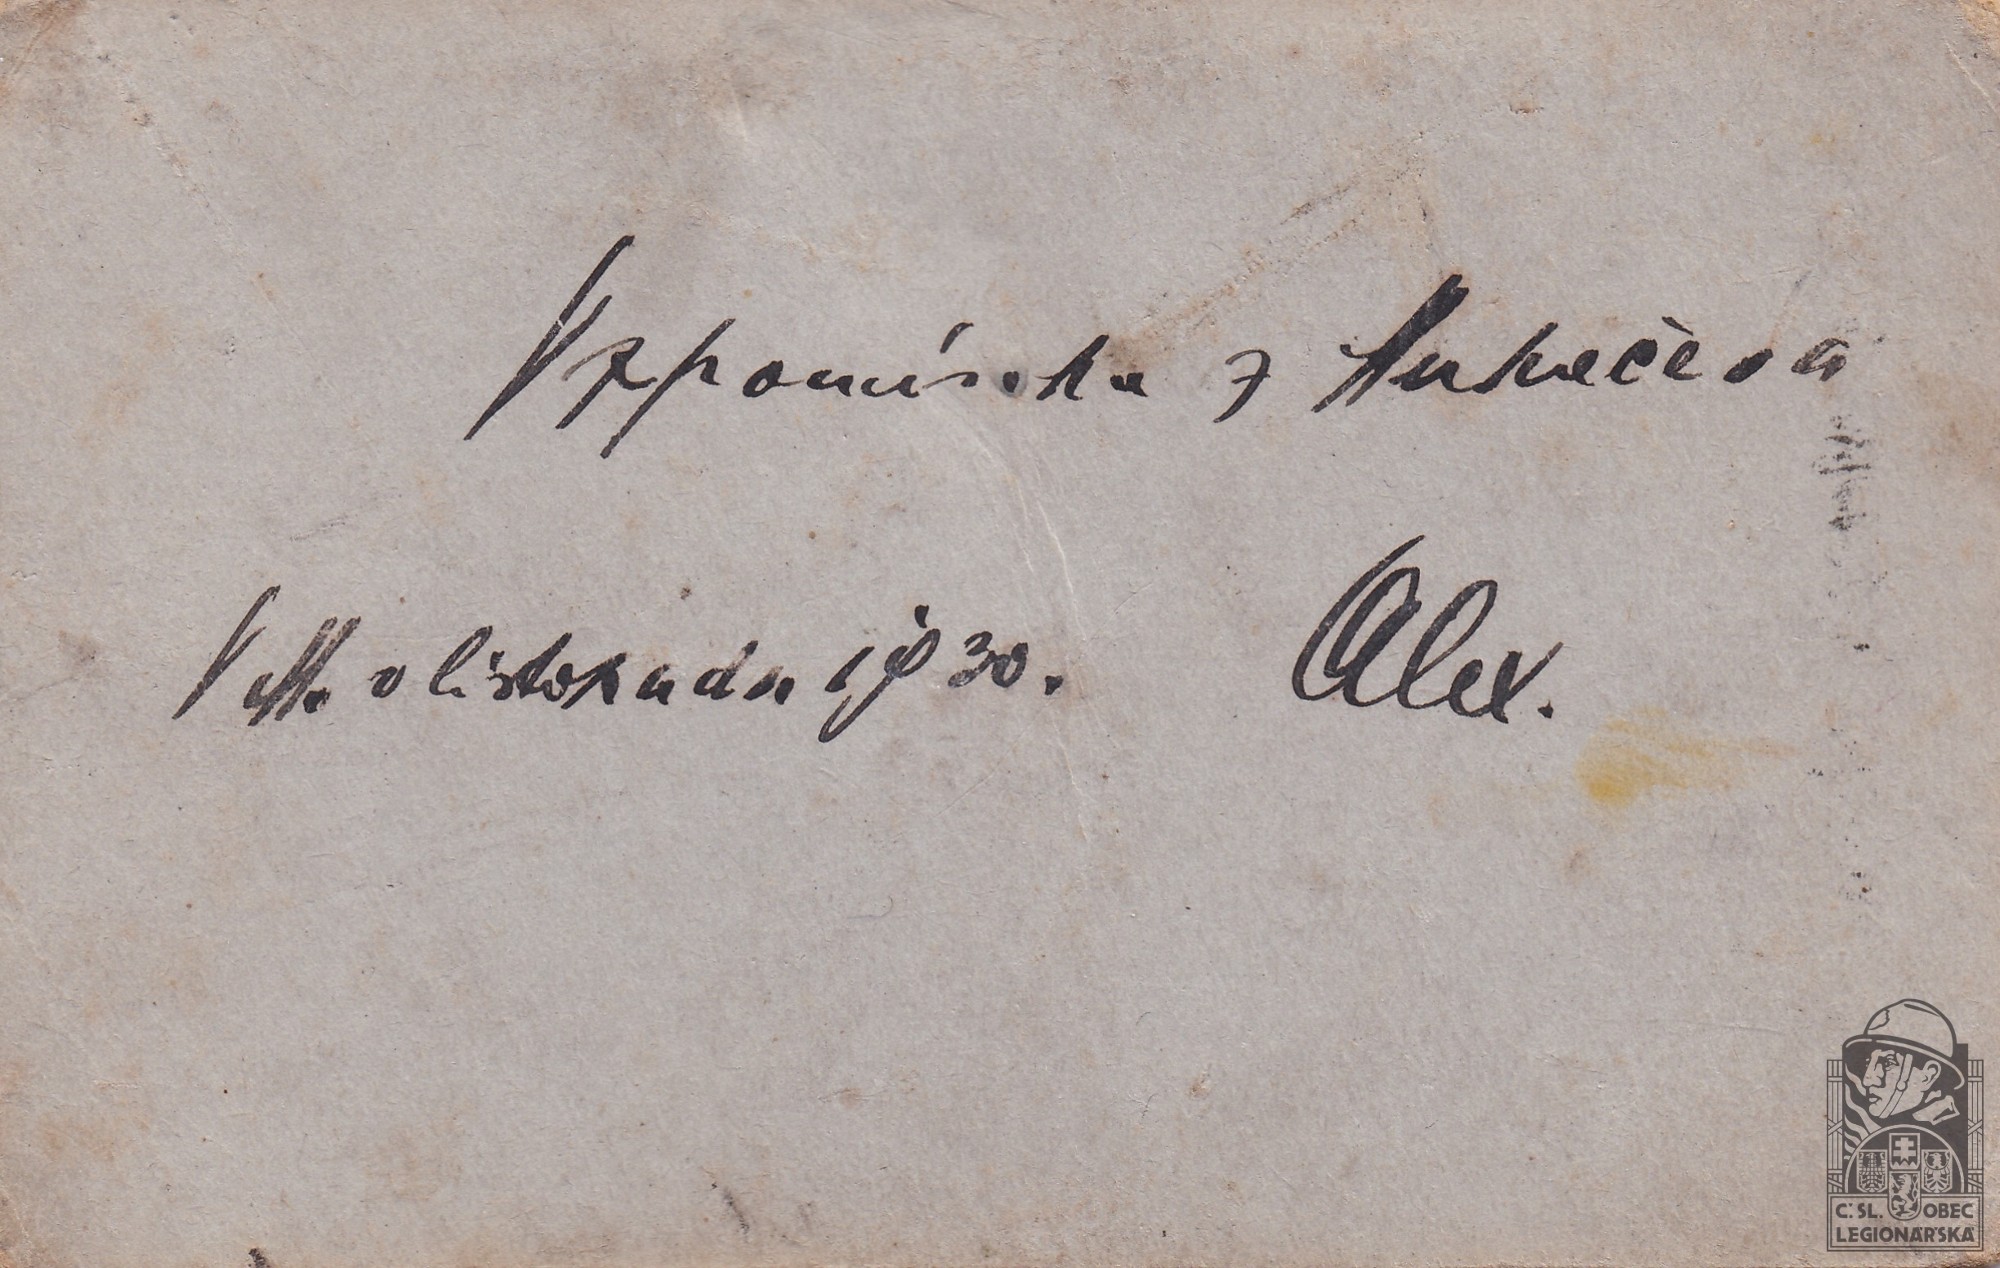 Vzpomínka z Mukačeva
V M. v listopadu 1930. Alex.
Č. SL. OBEC
LEGIONÁŘSKÁ